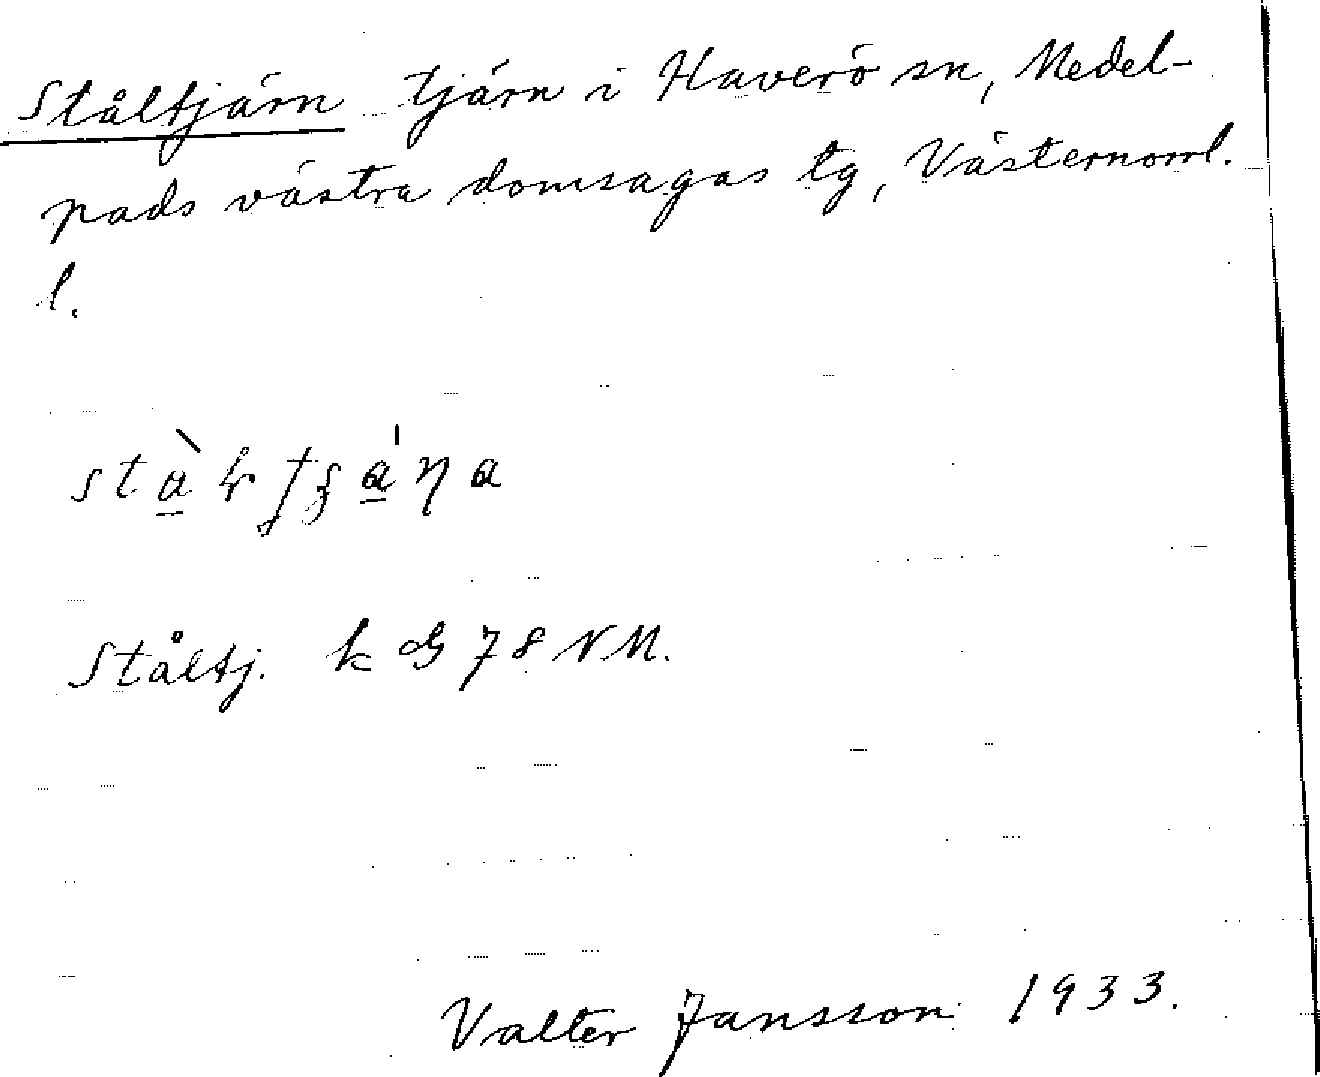 Ståltjärn tjärn i Haverö sn, Medel-
pads västra domsagas tg, Västernorrl.
l.
Ståltj. k G 78 NM.
Valter Jansson 1933.